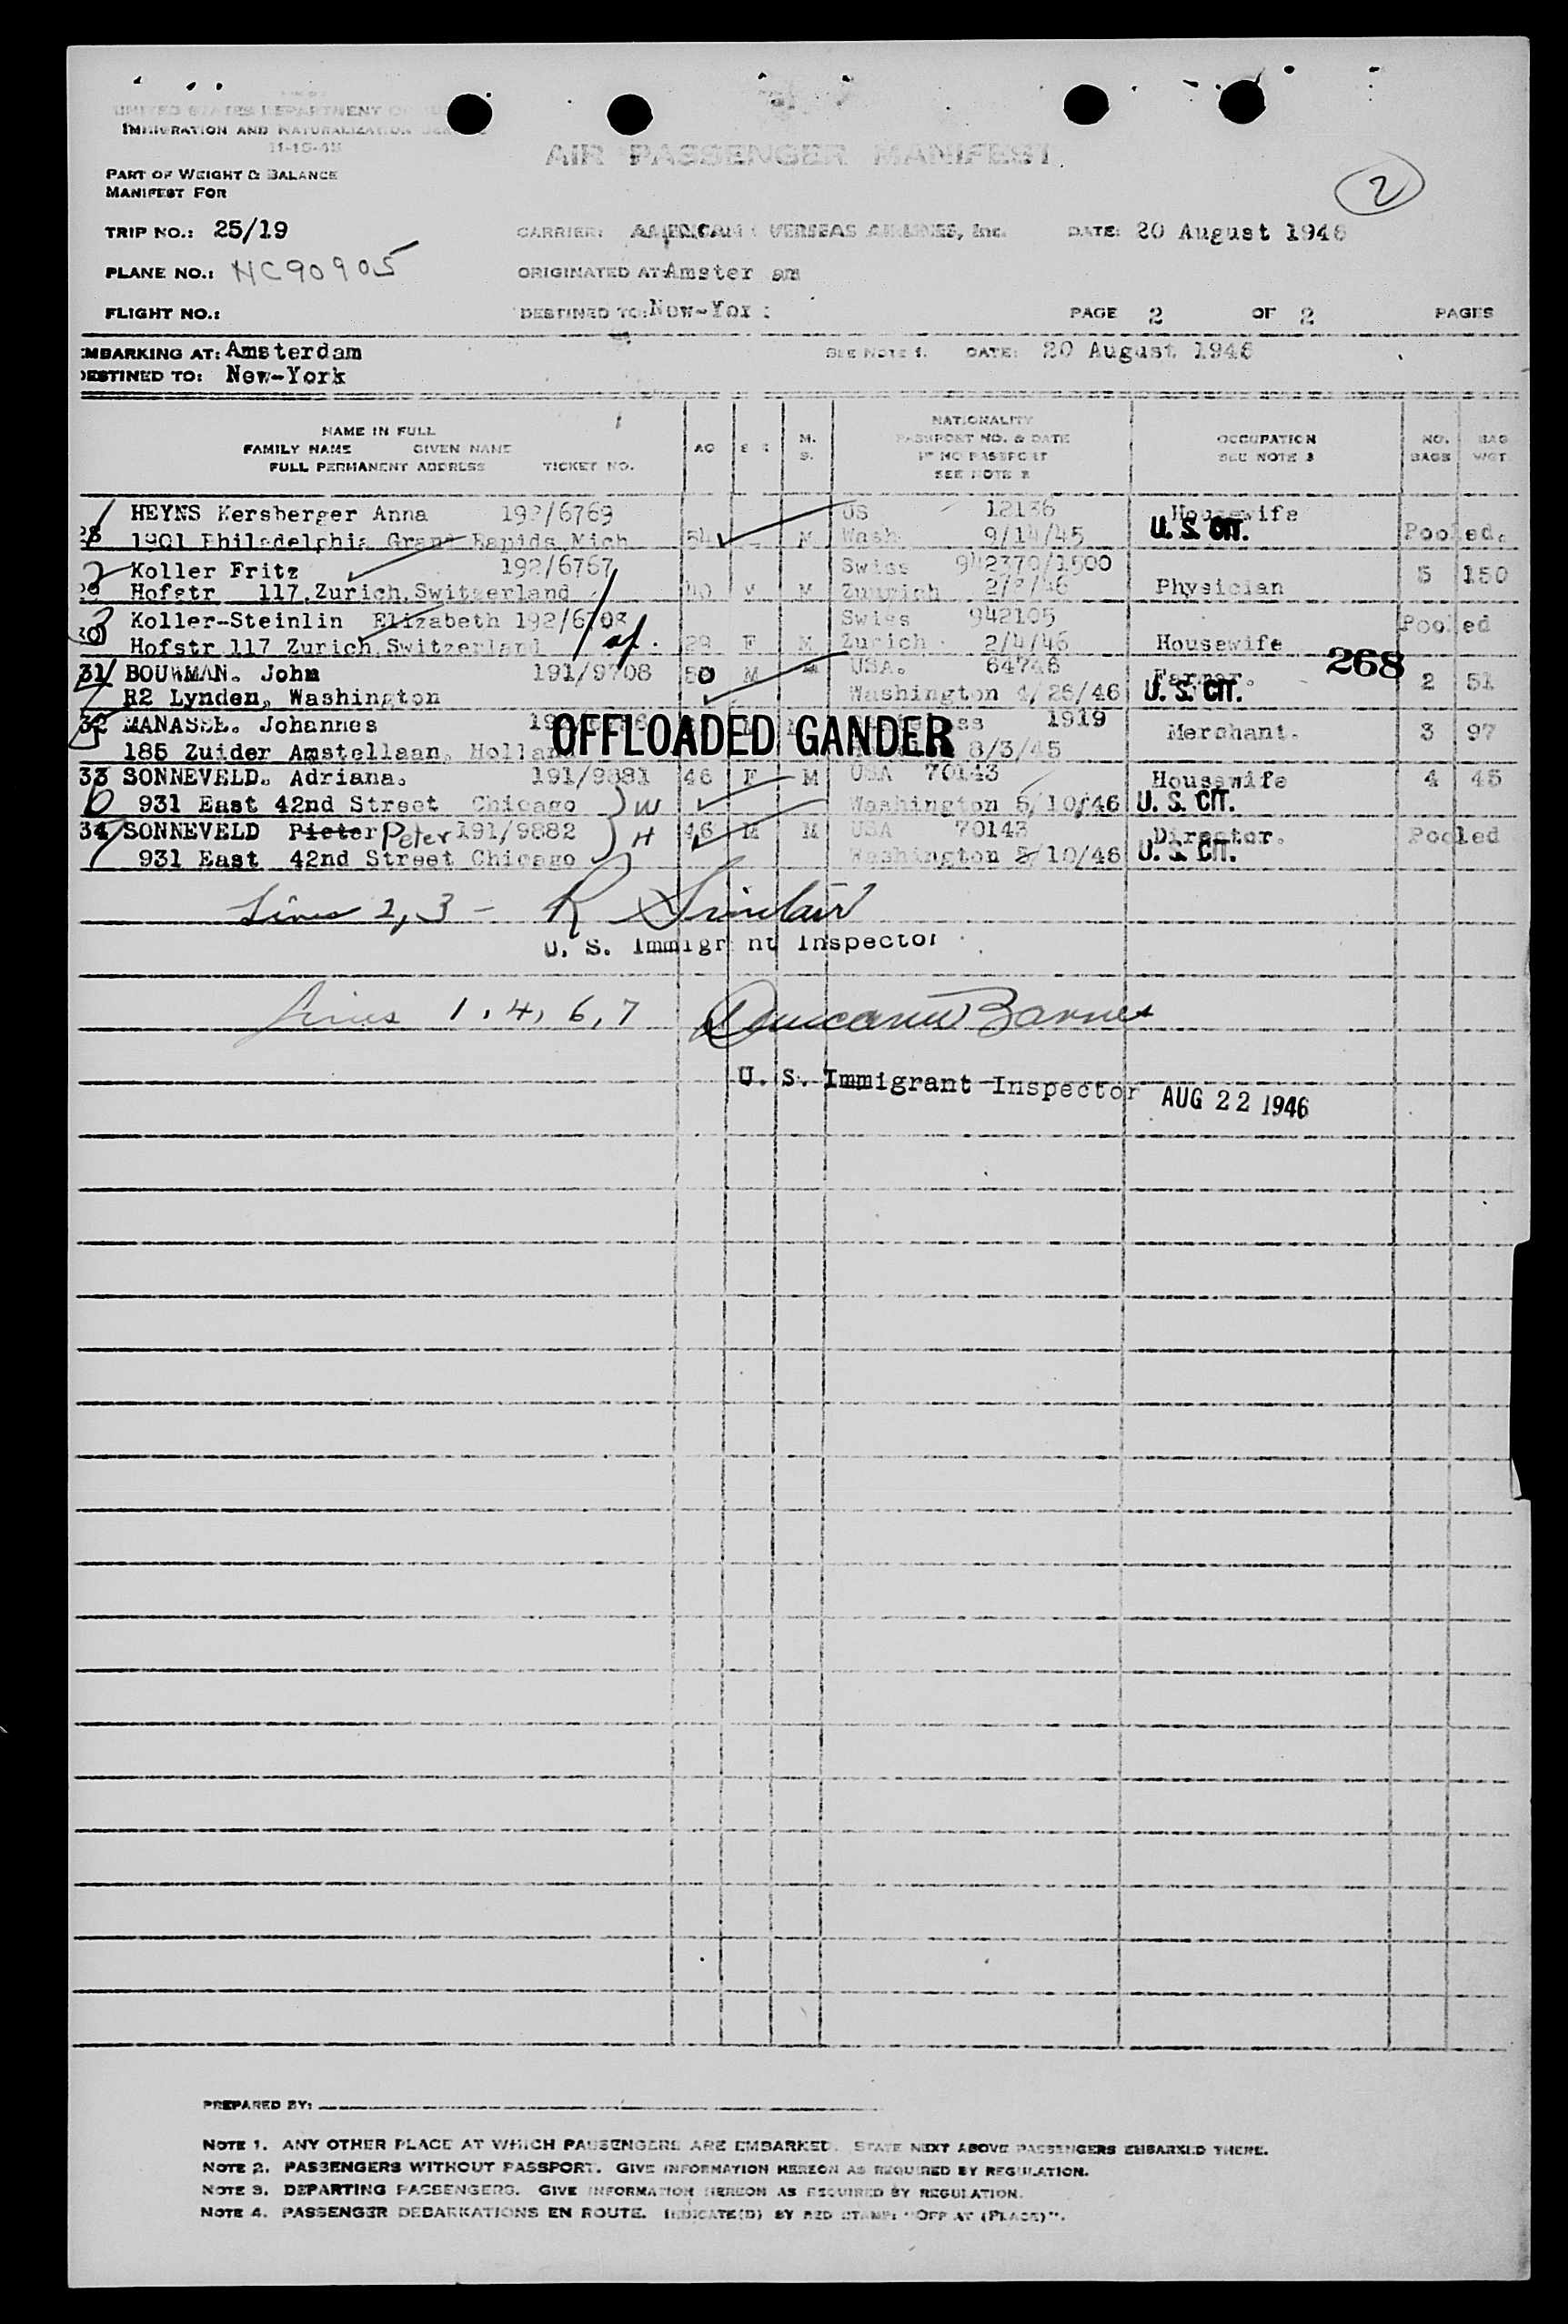 UNITED STATES DEPARTMENT OF
IMMIGRATION AND NATURALIZATION
AIR PASSENGER MANIFEST
PART OF WEIGHT & BALANCE
MANIFEST FOR
2
TRIP NO.: 25/19 CARRIER: AMERICAN OVERSEAS AIRLINES, Inc. DATE: 20 August 1946
PLANE NO.: NC90905 ORIGINATED AT: Amster am
FLIGHT NO.: DESTINED TO: New-Yor PAGE 2 OF 2 PAGES
EMBARKING AT: Amsterdam SEE NOTE 1. DATE: 20 August 1946
DESTINED TO: New-York
NAME IN FULL
FAMILY NAME GIVEN NAME
FULL PERMANENT ADDRESS TICKET NO.
AG
M.
S.
NATIONALITY
PASSPORT NO. & DATE
IF NO PASSPORT
SEE NOTE 2
OCCUPATION
SEE NOTE 3
NO.
BAGS
BAG
WGT.
1 HEYNS Kersberger Anna 192/6769 US 12136 Housewife
28 1901 Philadelphia Grand Rapids Mich 54 M Wash 9/14/45 U. S. CIT. Pooled.
2 Koller Fritz 192/6767 Swiss 942370/1500 5 150
29 Hofstr 117, Zurich, Switzerland 40 M M Zuurich 2/2/46 Physician
3 Koller-Steinlin Elizabeth 192/6708 Swiss 942105 Pooled
30 Hofstr 117 Zurich, Switzerland 29 F M Zurich 2/4/46 Housewife
268
31 BOUWMAN. John 191/9708 50 M M USA. 64746 Farmer. 2 51
R2 Lynden, Washington Washington 4/26/46 U. S. CIT.
32 MANASSE. Johannes 1919 Merchant. 3 97
OFFLOADED GANDER
185 Zuider Amstellaan, Holland 8/3/45
33 SONNEVELD. Adriana. 191/9881 46 F M USA 70143 Housewife 4 45
6 931 East 42nd Street Chicago W Washington 5/10/46 U. S. CIT.
34 SONNEVELD Pieter Peter 191/9882 H 46 M M USA 70143 Director. Pooled
7 931 East 42nd Street Chicago Washington 5/10/46 U. S. CIT.
Lines 2, 3 - R Sinclair
U. S. Immigr nt Inspector
Lines 1, 4, 6, 7 Barnes
U. S. Immigrant Inspector AUG 22 1946
PREPARED BY:
NOTE 1. ANY OTHER PLACE AT WHICH PASSENGERS ARE EMBARKED. STATE NEXT ABOVE PASSENGERS EMBARKED THERE.
NOTE 2. PASSENGERS WITHOUT PASSPORT. GIVE INFORMATION HEREON AS REQUIRED BY REGULATION.
NOTE 3. DEPARTING PASSENGERS. GIVE INFORMATION HEREON AS REQUIRED BY REGULATION.
NOTE 4. PASSENGER DEBARKATIONS EN ROUTE. INDICATE(D) BY RED STAMP: "OFF AT (PLACE)".